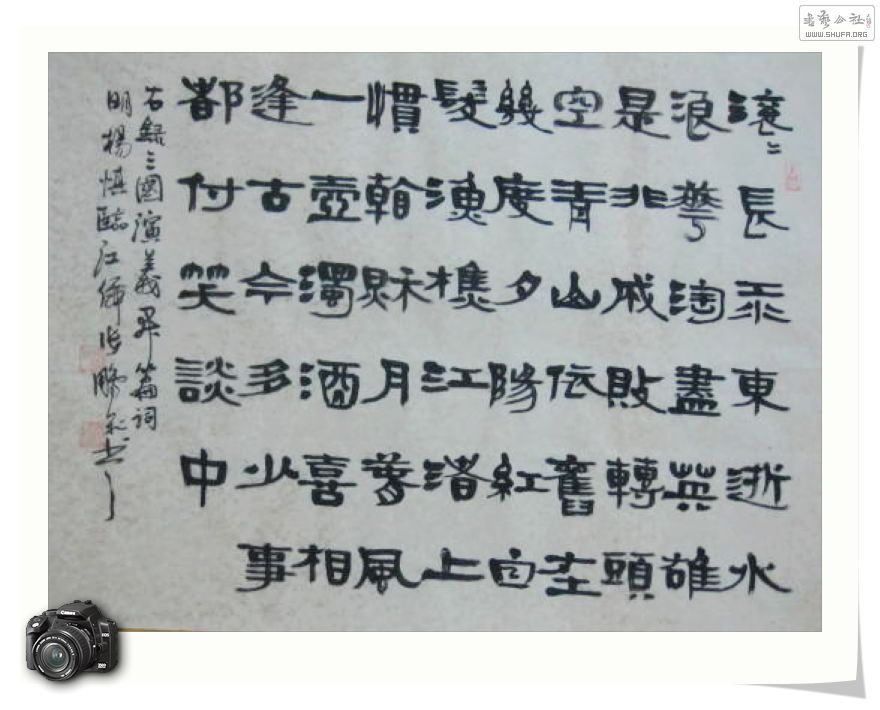 滾〻長江東逝水
浪華淘盡英雄
是非成敗轉頭
空青山依舊在
幾度夕陽紅白
髮漁樵江渚上
慣看秋月春風
一壺濁酒喜相
逢古今多少事
都付笑談中
右錄三國演義開篇詞
明楊慎臨江仙張書
書藝公社
WWW.SHUFA.ORG
Canon
EOS